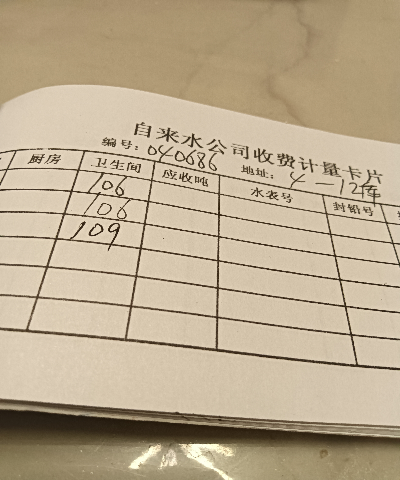 自来水公司收费计量卡片
编号:040686 地址:4-12库
厨房 卫生间 应收吨 水表号 封铅号
106
106
109